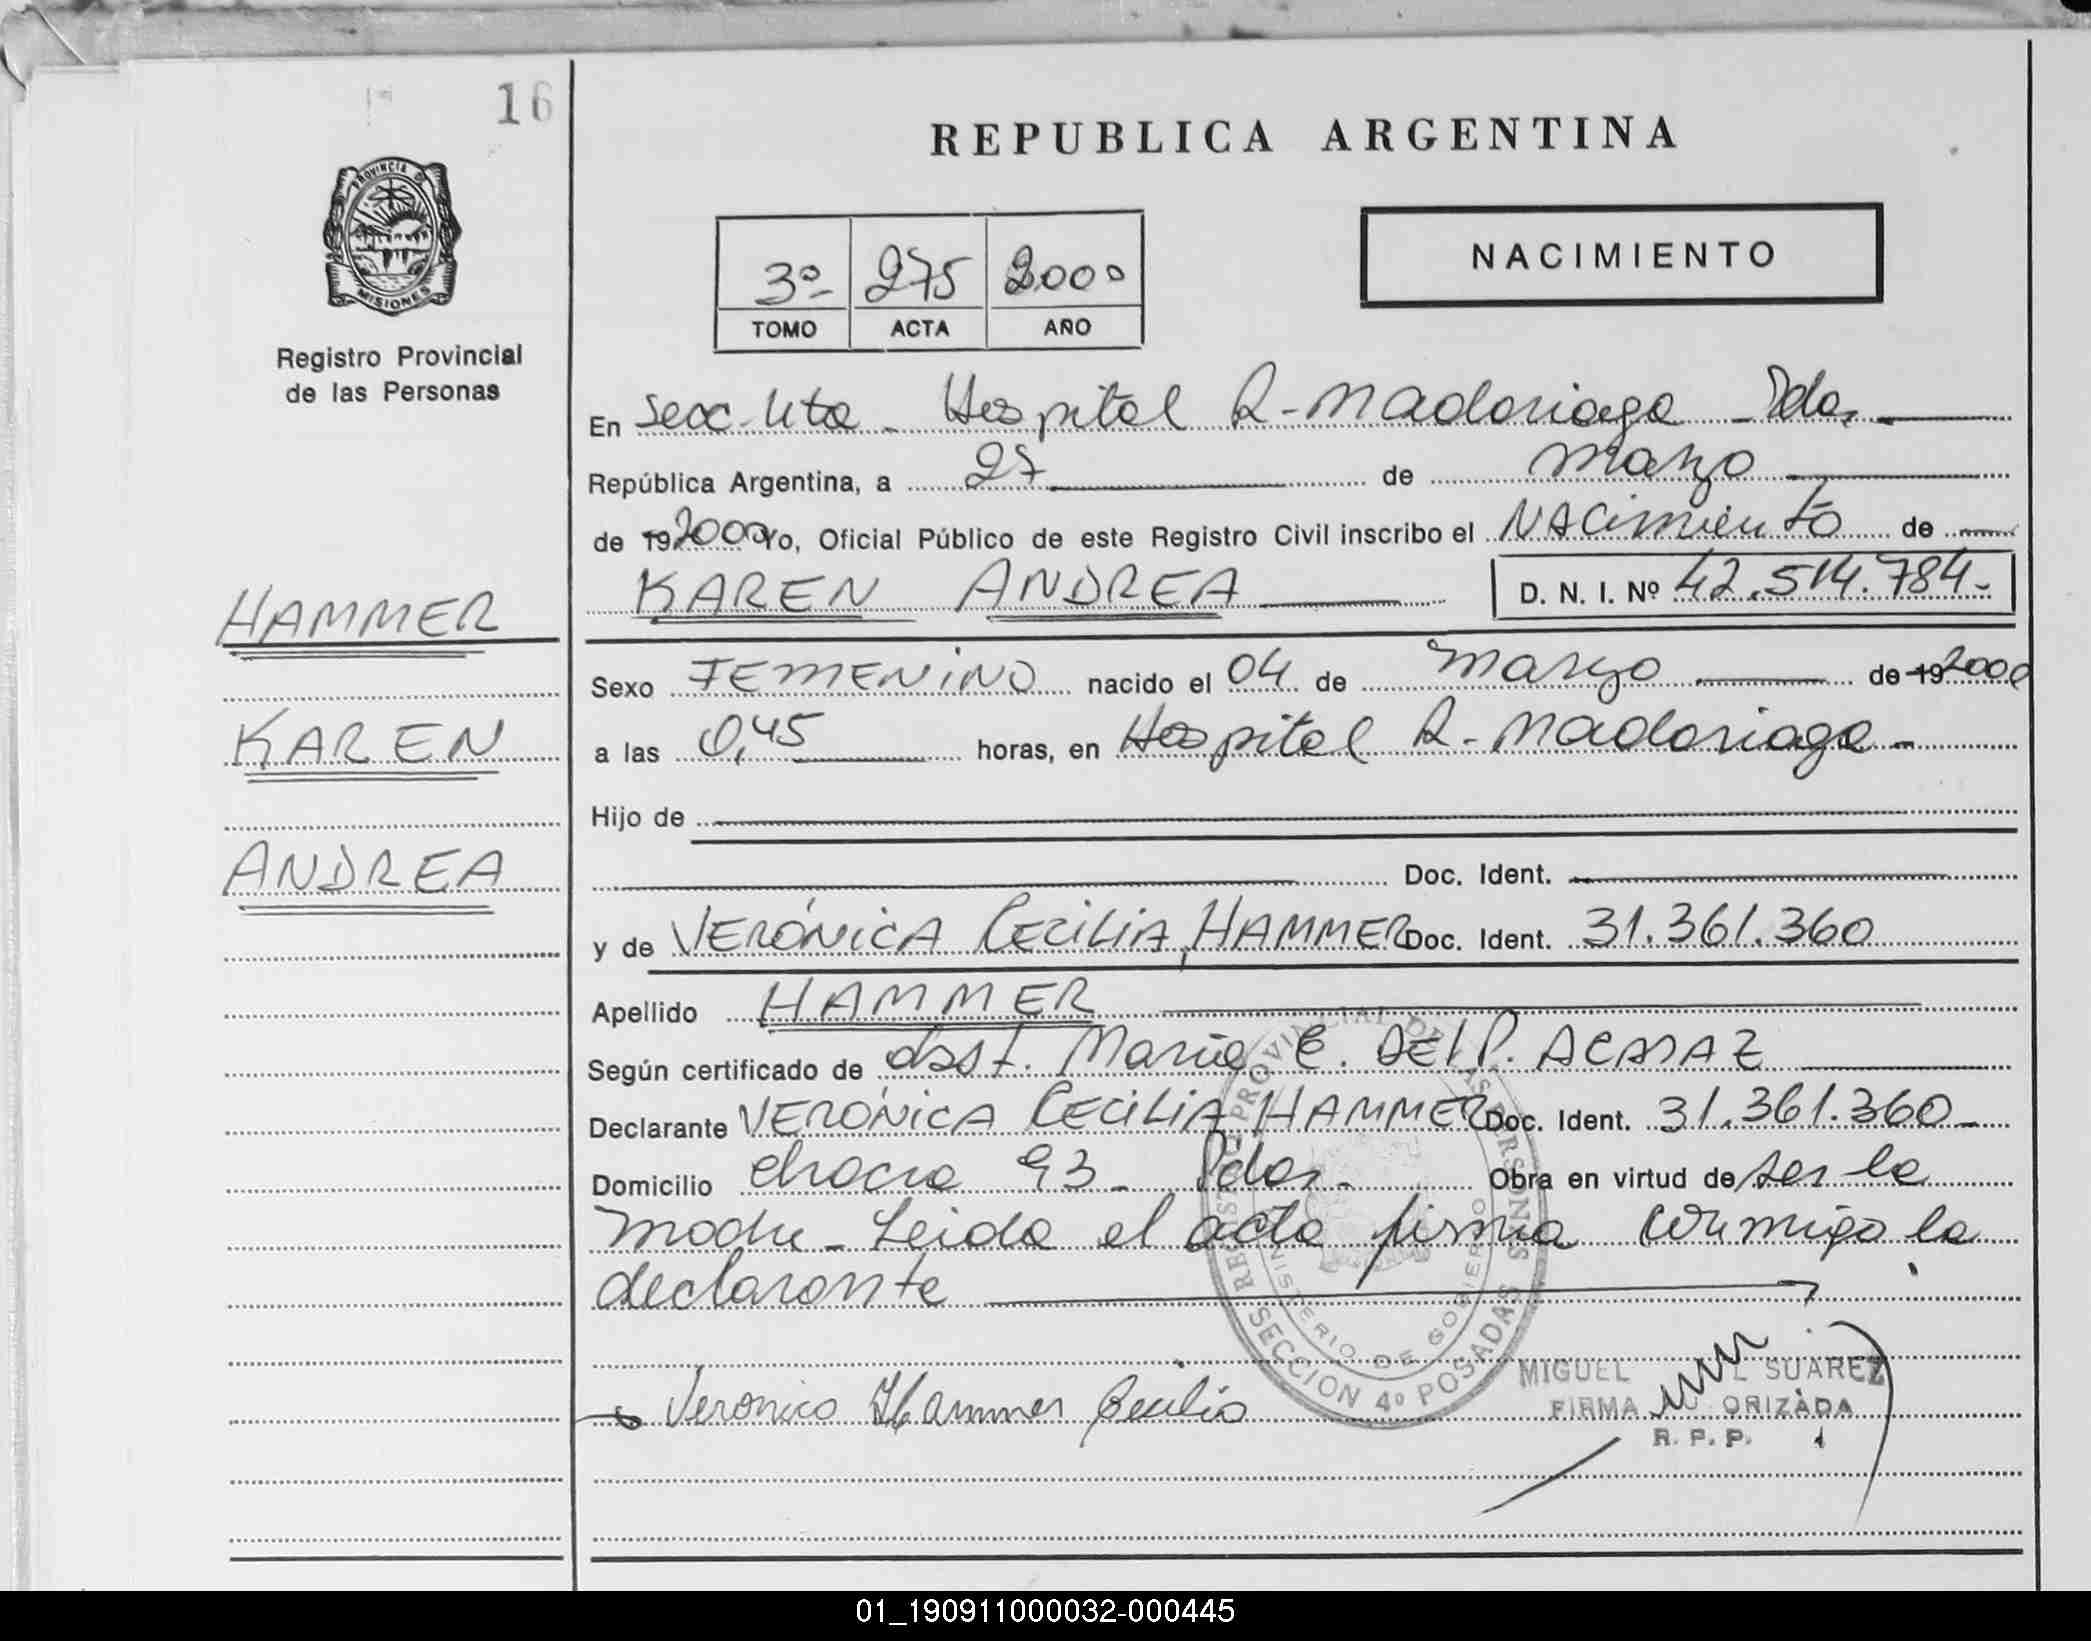 16
REPUBLICA ARGENTINA
PROVINCIA DE
MISIONES
Registro Provincial
de las Personas
3º 275 2000
TOMO ACTA AÑO
NACIMIENTO
En Secc. 4ta - Hospital R. Madariaga - Pdas.
República Argentina, a 27 de Marzo
de 19 2000 Yo, Oficial Público de este Registro Civil inscribo el NACimiento de
KAREN ANDREA D. N. I. Nº 42.514.784-
HAMMER
KAREN
ANDREA
Sexo FEMENiNO nacido el 04 de Marzo de 19 2000
a las 0,45 horas, en Hospital R. Madariaga -
Hijo de
Doc. Ident.
y de VERÓNiCA CECiLiA, HAMMER Doc. Ident. 31.361.360
Apellido HAMMER
Según certificado de Obst. María C. DEl P.
Declarante VERÓNiCA CECiLiA HAMMER Doc. Ident. 31.361.360-
Domicilio chacra 93 - Pdas. Obra en virtud de ser la
madre - Leida el acta firma conmigo la
declarante
REGISTRO PROVINCIAL DE LAS PERSONAS
MINISTERIO DE GOBIERNO
SECCION 4º POSADAS
Veronica Hammer Cecilia
MIGUEL SUAREZ
FIRMA AUTORIZADA
R. P. P.
01_190911000032-000445